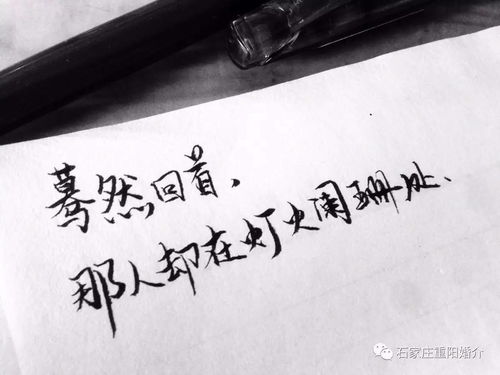 蓦然回首,
那人却在灯火阑珊处、
石家庄重阳婚介